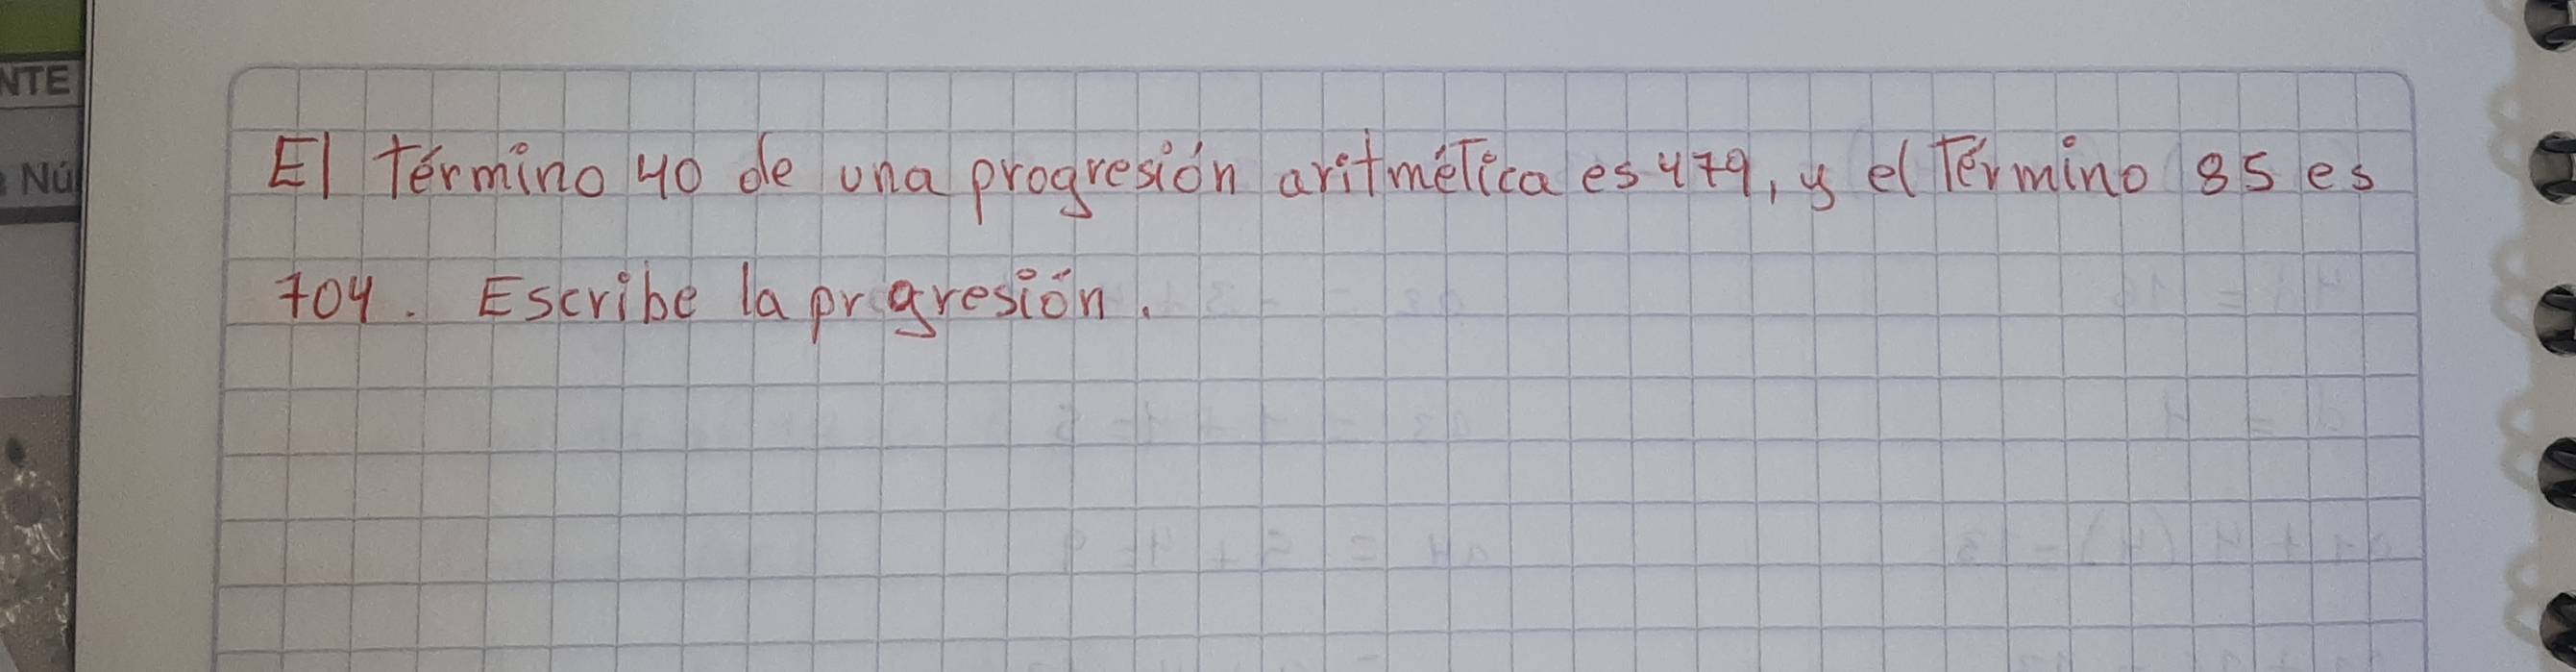 NTE
Nú
El término 40 de una progresión aritmética es 479, y el término 85 es
704. Escribe la prgresión.